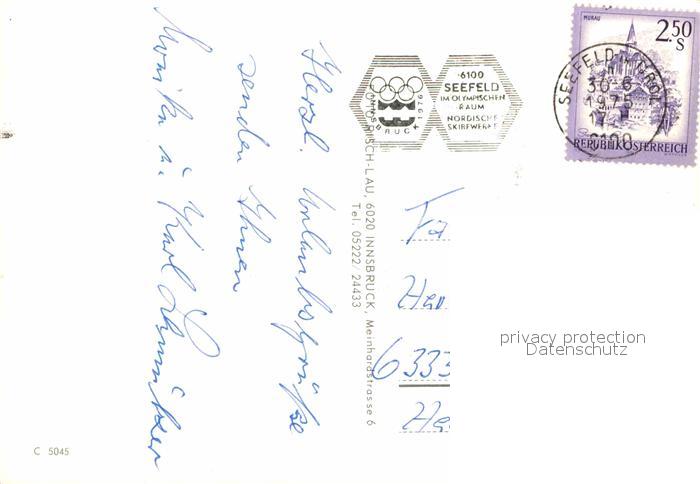 Herzl. Urlaubsgrüße
senden Ihnen
Monika u. Karl
C 5045
DISCH-LAU, 6020 INNSBRUCK, Meinhardstrasse 6
Tel. 05222/24433
INNSBRUCK 1976
6100
SEEFELD
IM OLYMPISCHEN
RAUM
NORDISCHE
SKIBEWERBE
MURAU
2.50
S
REPUBLIK ÖSTERREICH
SEEFELD IN TIROL
30.-6
1975
17
6100
Fa
Her
6333
He
privacy protection
Datenschutz